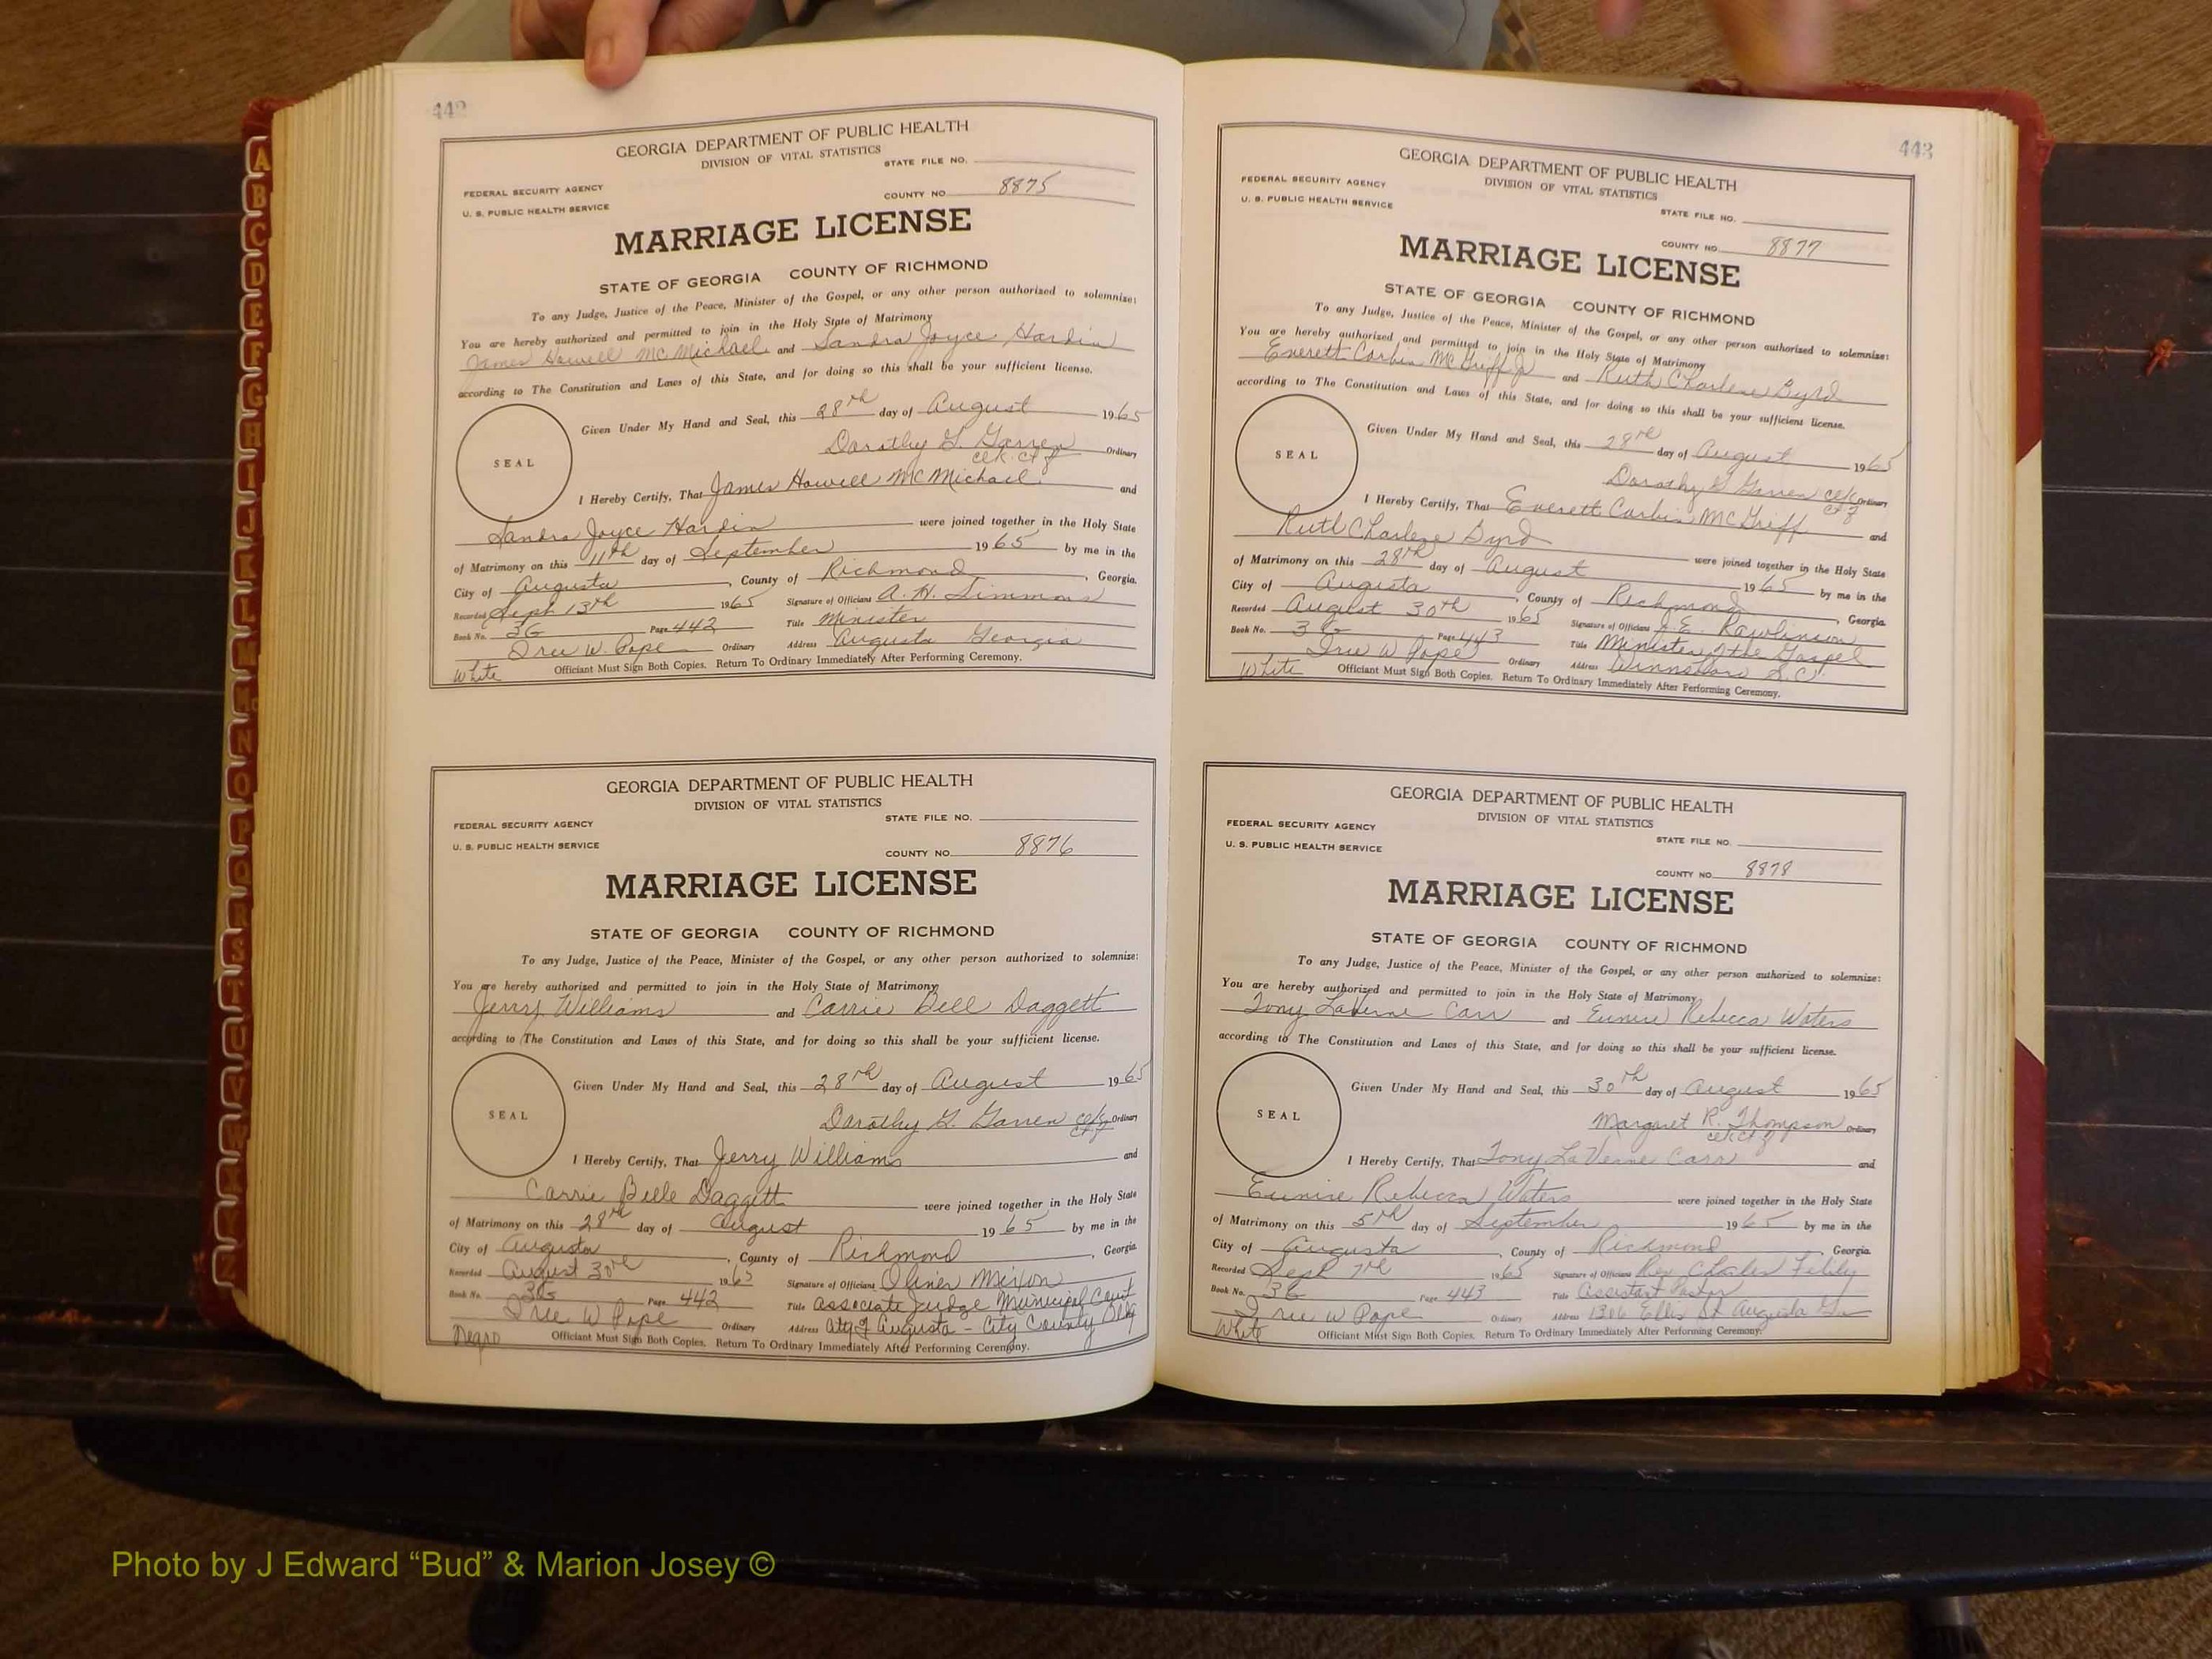 442
GEORGIA DEPARTMENT OF PUBLIC HEALTH
DIVISION OF VITAL STATISTICS
STATE FILE NO.
FEDERAL SECURITY AGENCY
COUNTY NO. 8875
U. S. PUBLIC HEALTH SERVICE
MARRIAGE LICENSE
STATE OF GEORGIA COUNTY OF RICHMOND
To any Judge, Justice of the Peace, Minister of the Gospel, or any other person authorized to solemnize:
You are hereby authorized and permitted to join in the Holy State of Matrimony
James Howell McMichael and Sandra Joyce Hardin
according to The Constitution and Laws of this State, and for doing so this shall be your sufficient license.
Given Under My Hand and Seal, this 28th day of August 1965
SEAL
Dorothy G. Garren Ordinary
clk. ct of
I Hereby Certify, That James Howell McMichael and
Sandra Joyce Hardin were joined together in the Holy State
of Matrimony on this 11th day of September 1965 by me in the
City of Augusta, County of Richmond, Georgia.
Recorded Sept 13th 1965 Signature of Officiant A. H. Simmons
Book No. 3G Page 442 Title Minister
Iree W. Pope Ordinary Address Augusta Georgia
White Officiant Must Sign Both Copies. Return To Ordinary Immediately After Performing Ceremony.
GEORGIA DEPARTMENT OF PUBLIC HEALTH
DIVISION OF VITAL STATISTICS
STATE FILE NO.
FEDERAL SECURITY AGENCY
U. S. PUBLIC HEALTH SERVICE
COUNTY NO. 8876
MARRIAGE LICENSE
STATE OF GEORGIA COUNTY OF RICHMOND
To any Judge, Justice of the Peace, Minister of the Gospel, or any other person authorized to solemnize:
You are hereby authorized and permitted to join in the Holy State of Matrimony
Jerry Williams and Carrie Bell Daggett
according to The Constitution and Laws of this State, and for doing so this shall be your sufficient license.
Given Under My Hand and Seal, this 28th day of August 1965
SEAL
Dorothy G. Garren clk Ordinary
I Hereby Certify, That Jerry Williams and
Carrie Belle Daggett were joined together in the Holy State
of Matrimony on this 28th day of August 1965 by me in the
City of Augusta, County of Richmond, Georgia
Recorded August 30th 1965 Signature of Officiant Oliver Mixon
Book No. 3G Page 442 Title Associate Judge Municipal Court
Iree W Pope Ordinary Address City of Augusta - City County Bldg
Negro Officiant Must Sign Both Copies. Return To Ordinary Immediately After Performing Ceremony.
443
GEORGIA DEPARTMENT OF PUBLIC HEALTH
DIVISION OF VITAL STATISTICS
FEDERAL SECURITY AGENCY
STATE FILE NO.
U. S. PUBLIC HEALTH SERVICE
COUNTY NO. 8877
MARRIAGE LICENSE
STATE OF GEORGIA COUNTY OF RICHMOND
To any Judge, Justice of the Peace, Minister of the Gospel, or any other person authorized to solemnize:
You are hereby authorized and permitted to join in the Holy State of Matrimony
Everett Corbin McGriff Jr and Ruth Charlene Byrd
according to The Constitution and Laws of this State, and for doing so this shall be your sufficient license.
Given Under My Hand and Seal, this 28th day of August 1965
SEAL
Dorothy G Garren clk Ordinary
I Hereby Certify, That Everett Corbin McGriff and
Ruth Charlene Byrd were joined together in the Holy State
of Matrimony on this 28th day of August 1965 by me in the
City of Augusta, County of Richmond, Georgia.
Recorded August 30th 1965 Signature of Officiant J. E. Rawlinson
Book No. 3G Page 443 Title Minister of the Gospel
Iree W Pope Ordinary Address Winnsboro S.C.
White Officiant Must Sign Both Copies. Return To Ordinary Immediately After Performing Ceremony.
GEORGIA DEPARTMENT OF PUBLIC HEALTH
DIVISION OF VITAL STATISTICS
FEDERAL SECURITY AGENCY
STATE FILE NO.
U. S. PUBLIC HEALTH SERVICE
COUNTY NO. 8878
MARRIAGE LICENSE
STATE OF GEORGIA COUNTY OF RICHMOND
To any Judge, Justice of the Peace, Minister of the Gospel, or any other person authorized to solemnize:
You are hereby authorized and permitted to join in the Holy State of Matrimony
Tony LaVerne Carr and Eunice Rebecca Waters
according to The Constitution and Laws of this State, and for doing so this shall be your sufficient license.
Given Under My Hand and Seal, this 30th day of August 1965
SEAL
Margaret R. Thompson Ordinary
clk ct of
I Hereby Certify, That Tony LaVerne Carr and
Eunice Rebecca Waters were joined together in the Holy State
of Matrimony on this 5th day of September 1965 by me in the
City of Augusta, County of Richmond, Georgia.
Recorded Sept 7th 1965 Signature of Officiant Rev Charles
Book No. 3G Page 443 Title Assistant Pastor
Iree W Pope Ordinary Address 1306 Ellis St Augusta Ga
White Officiant Must Sign Both Copies. Return To Ordinary Immediately After Performing Ceremony.
A
B
C
D
E
F
G
H
I
J
K
L
M
Mc
N
O
P
Q
R
S
T
U
V
W
X
Y
Z
Photo by J Edward “Bud” & Marion Josey ©